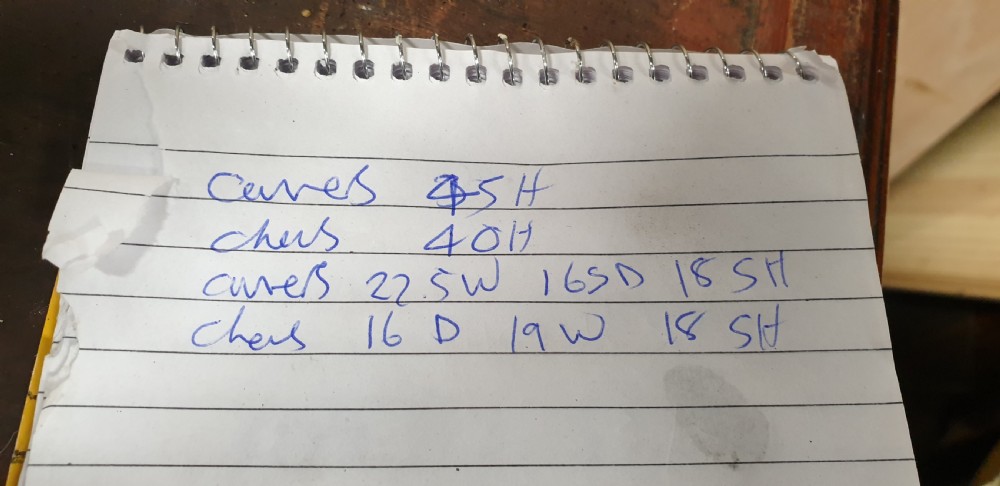 carvers 45H
chers 40H
carvers 22.5W 16.5D 18 SH
chers 16 D 19 W 18 SH